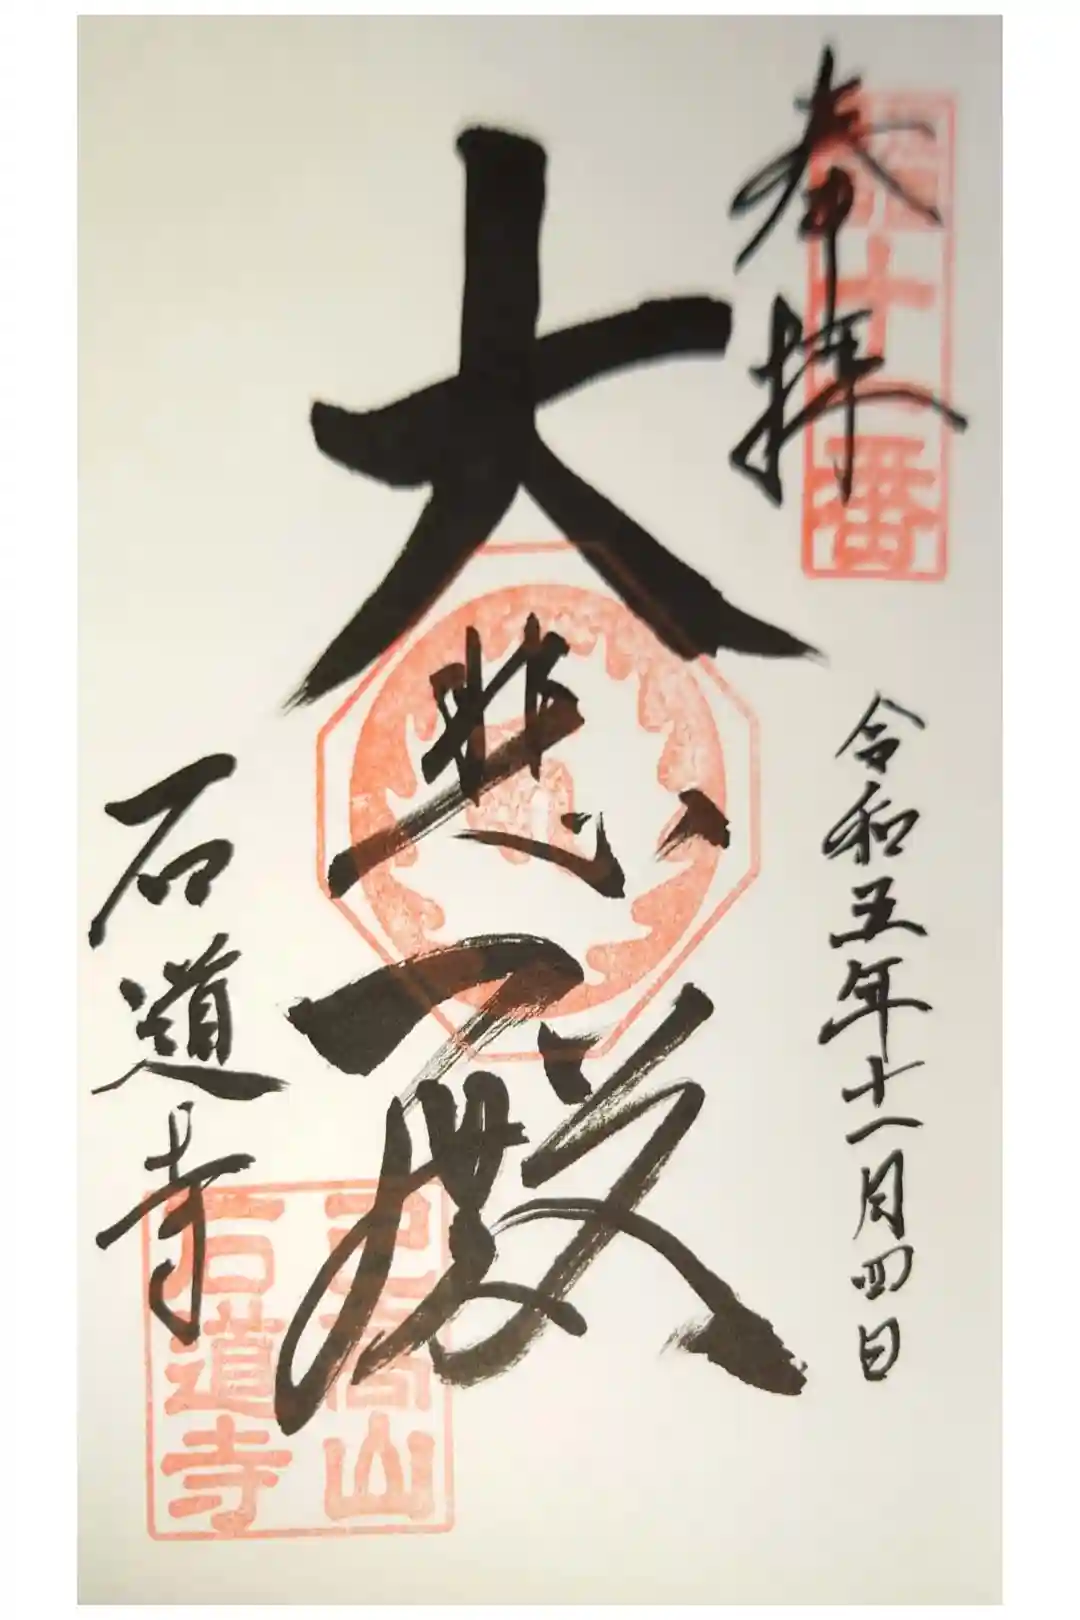 奉拝
第十一番
令和五年十一月四日
大悲殿
石道寺
己高山
石道寺